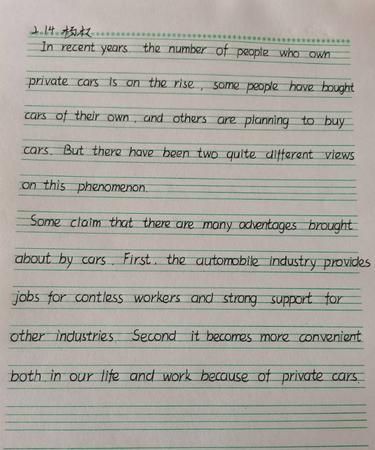 2.14. 杨权
In recent years the number of people who own
private cars is on the rise, some people have bought
cars of their own, and others are planning to buy
cars. But there have been two quite different views
on this phenomenon.
Some claim that there are many advantages brought
about by cars. First, the automobile industry provides
jobs for contless workers and strong support for
other industries. Second it becomes more convenient
both in our life and work because of private cars.